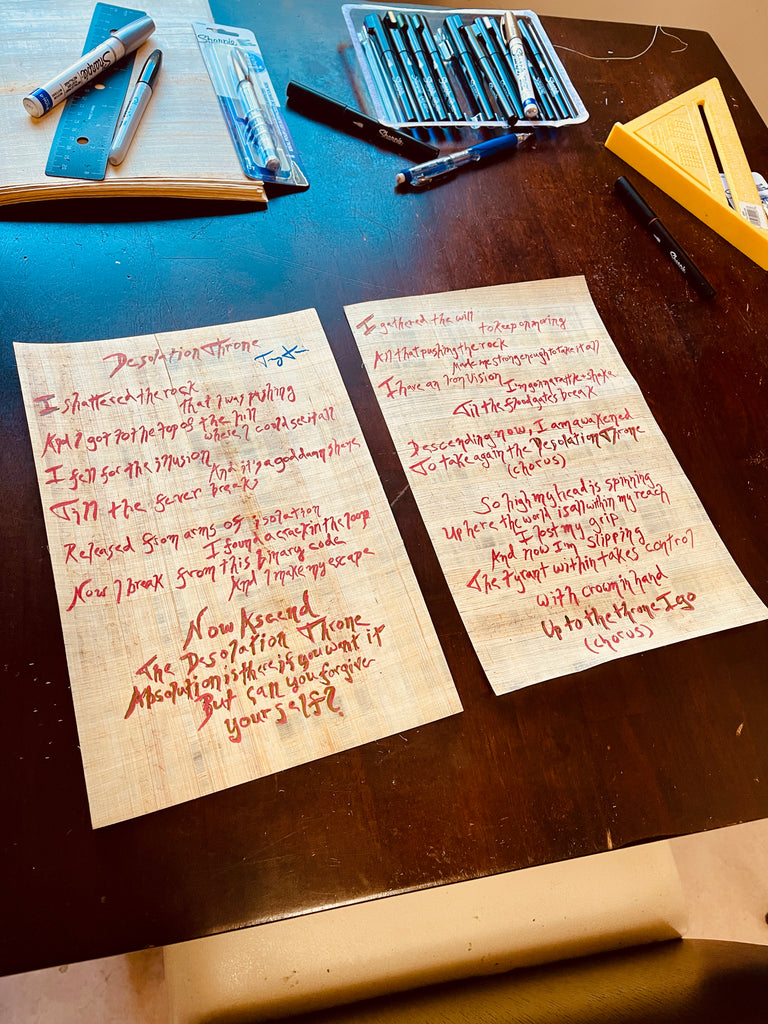 Sharpie
Sharpie
Sharpie
Sharpie
Desolation Throne
I shattered the rock
that I was pushing
And I got to the top of the hill
where I could see it all
I fell for the illusion
And it's a goddamn shame
Till the fever breaks
Released from arms of isolation
I found a crack in the loop
Now I break from this binary code
And I make my escape
Now Ascend
The Desolation Throne
Absolution is there if you want it
But can you forgive
yourself?
I gathered the will
to keep on moving
All that pushing the rock
Made me strong enough to take it all
I have an Iron Vision
I'm gonna rattle + shake
Till the floodgates break
Descending now, I am awakened
To take again the Desolation Throne
(chorus)
So high my head is spinning
Up here the world is all within my reach
I lost my grip
And now I'm slipping
The tyrant within takes control
with crown in hand
Up to the throne I go
(chorus)